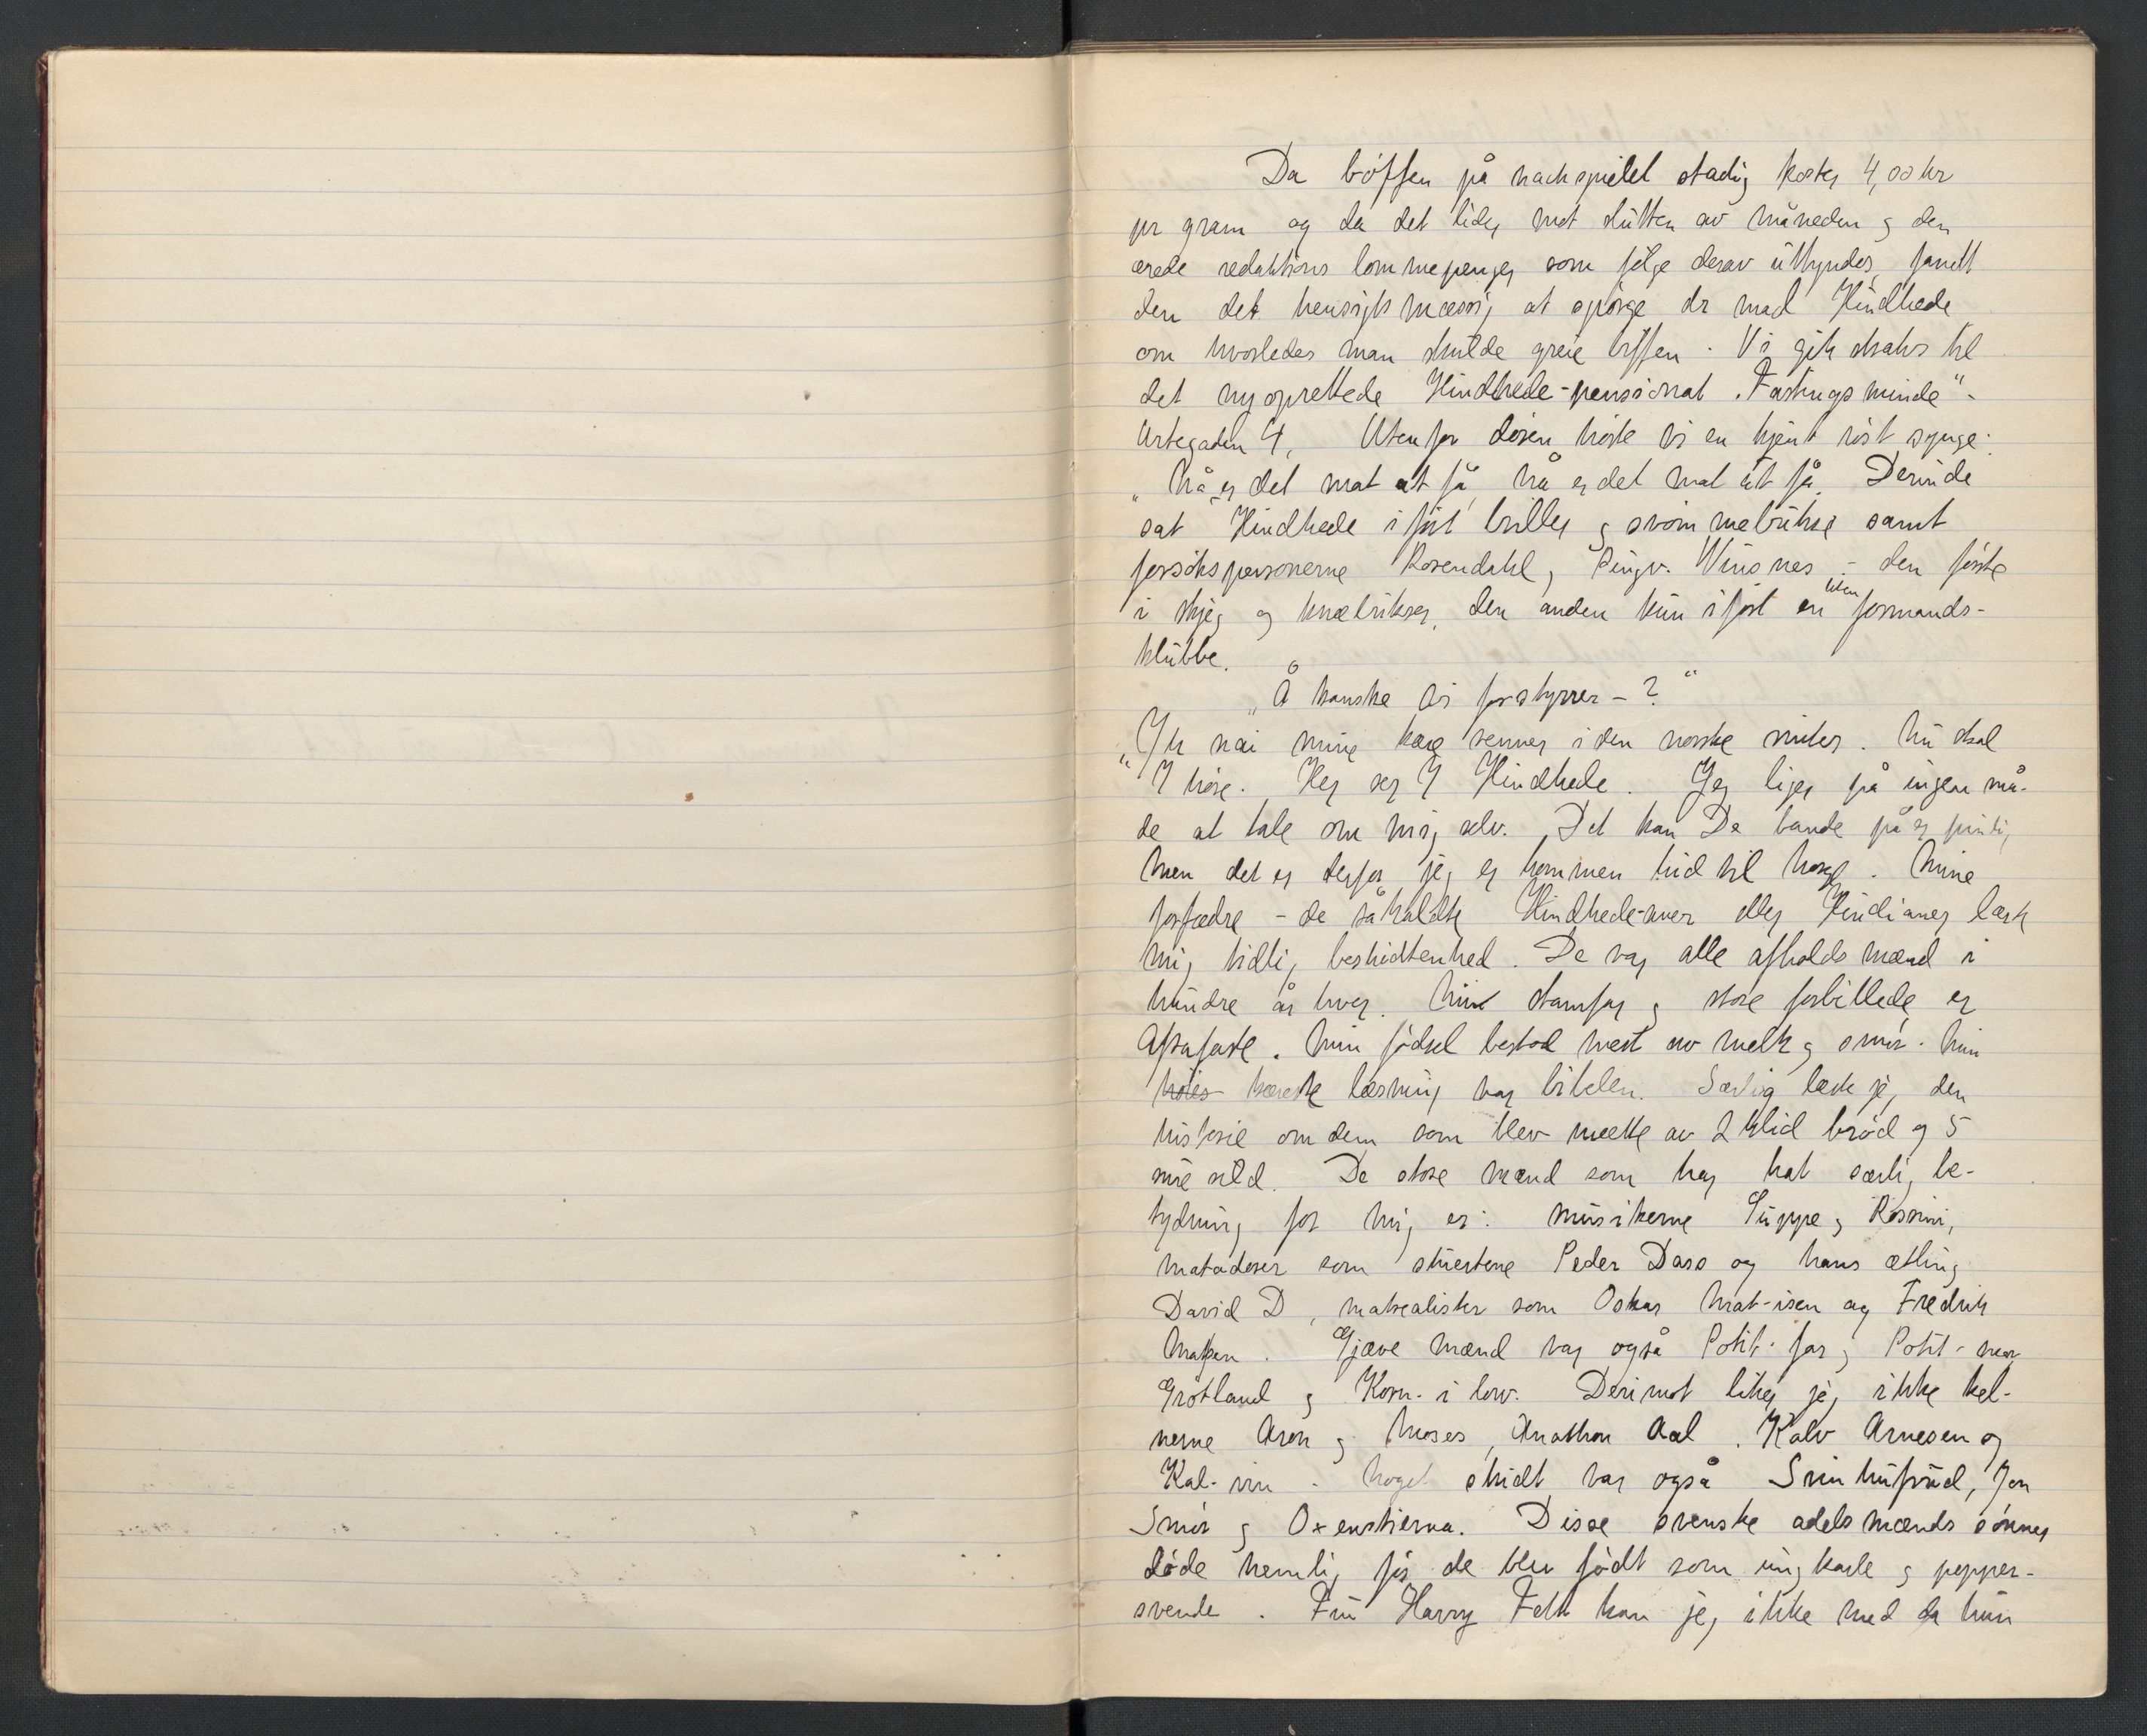 Da böffen på nachspielet stadig koster 4,00 kr
pr gram og da det lider mot slutten av måneden og den
ærede redaktions lommepenger som følge derav uttyndes, fandt
den det hensigtsmæssig at spørge dr mad Hindhede
om hvorledes man skulde greie biffen. Vi gik straks til
det nyoprettede Hindhede-pensionat "Fastings minde" -
Urtegaden 4. Utenfor døren hørte vi en kjent røst synge:
"Nå er det mat at få, nå er det mat at få. Derinde
sat Hindhede iført briller og svømmebukse samt
forsøkspersonerne Rosendahl og Ringv. Winsnes - den første
i skjeg og knæbukser, den anden kun iført en liten formands-
klubbe.
"Å kanske vi forstyrrer - ?"
"Ih nai mine kære venner i den norske vinter. Nu skal
"I høre. Her ser I Hindhede. Jeg liger på ingen må-
de at tale om mig selv. Det kan De bande på
men det er derfor jeg er kommen hid til Norge. Mine
forfædre - de såkaldte Hindhede-aner eller Hindianer lærte
mig tidlig beskidtenhed. De var alle afholdsmænd i
hundre år hver. Min stamfar og store forbillede er
Afrafaste. Min fødsel bestod mest av melk og smør. Min
høies kæreste læsning var bibelen. Særlig læste jeg den
historie om dem som blev mætte av 2 klid brød og 5
sure sild. De store mænd som har hat særlig be-
tydning for mig er: musikerne Suppe og Rossini,
matadorer som skuestene Peder Dass og hans ætling
David D, matrealister som Oskar Mat-isen og Fredrik
Matsen. Gjæve mænd var også Potit-far og Potit-mor
Grøtland og Korn-i low. Derimot liker jeg ikke kel-
nerne Aron og Moses, Anathon Aal. Kalv Arnesen og
Kal-vin - Noget skidt var også Svinhufvud, Jon
Smør og Oxenstierna. Disse svenske adelsmænds sønner
døde nemlig før de blev født som ungkarle og pepper-
svende. Fru Harry Fett kan jeg ikke med da hun